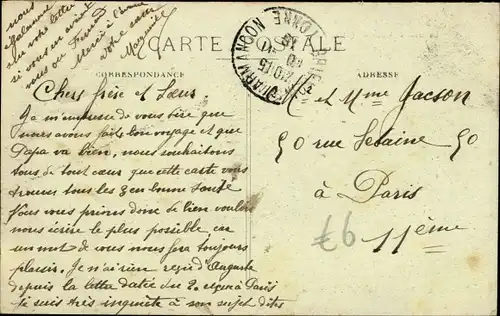 nous
également
eu votre lettre
si vous en avez
vous ou Fernand
Merci à l'avance
votre sœur
Marguerite
CARTE POSTALE
CORRESPONDANCE
ADRESSE
LAROCHE-ST-FLORENTIN
Cher frère et Sœur.
Je m'empresse de vous dire que
nous avons fait bon voyage et que
Papa va bien, nous souhaitons
tous de tout cœur que cette carte vous
trouve tous les 3 en bonne santé
Nous vous prions donc de bien vouloir
nous écrire le plus possible, car
un mot de vous nous fera toujours
plaisir. Je n'ai rien reçu d'Auguste
depuis la lettre datée du 20 reçue à Paris
je suis très inquiète à son sujet dites
Mr et Mme Jacson
50 rue Sedaine 50
à Paris
11ème
£6